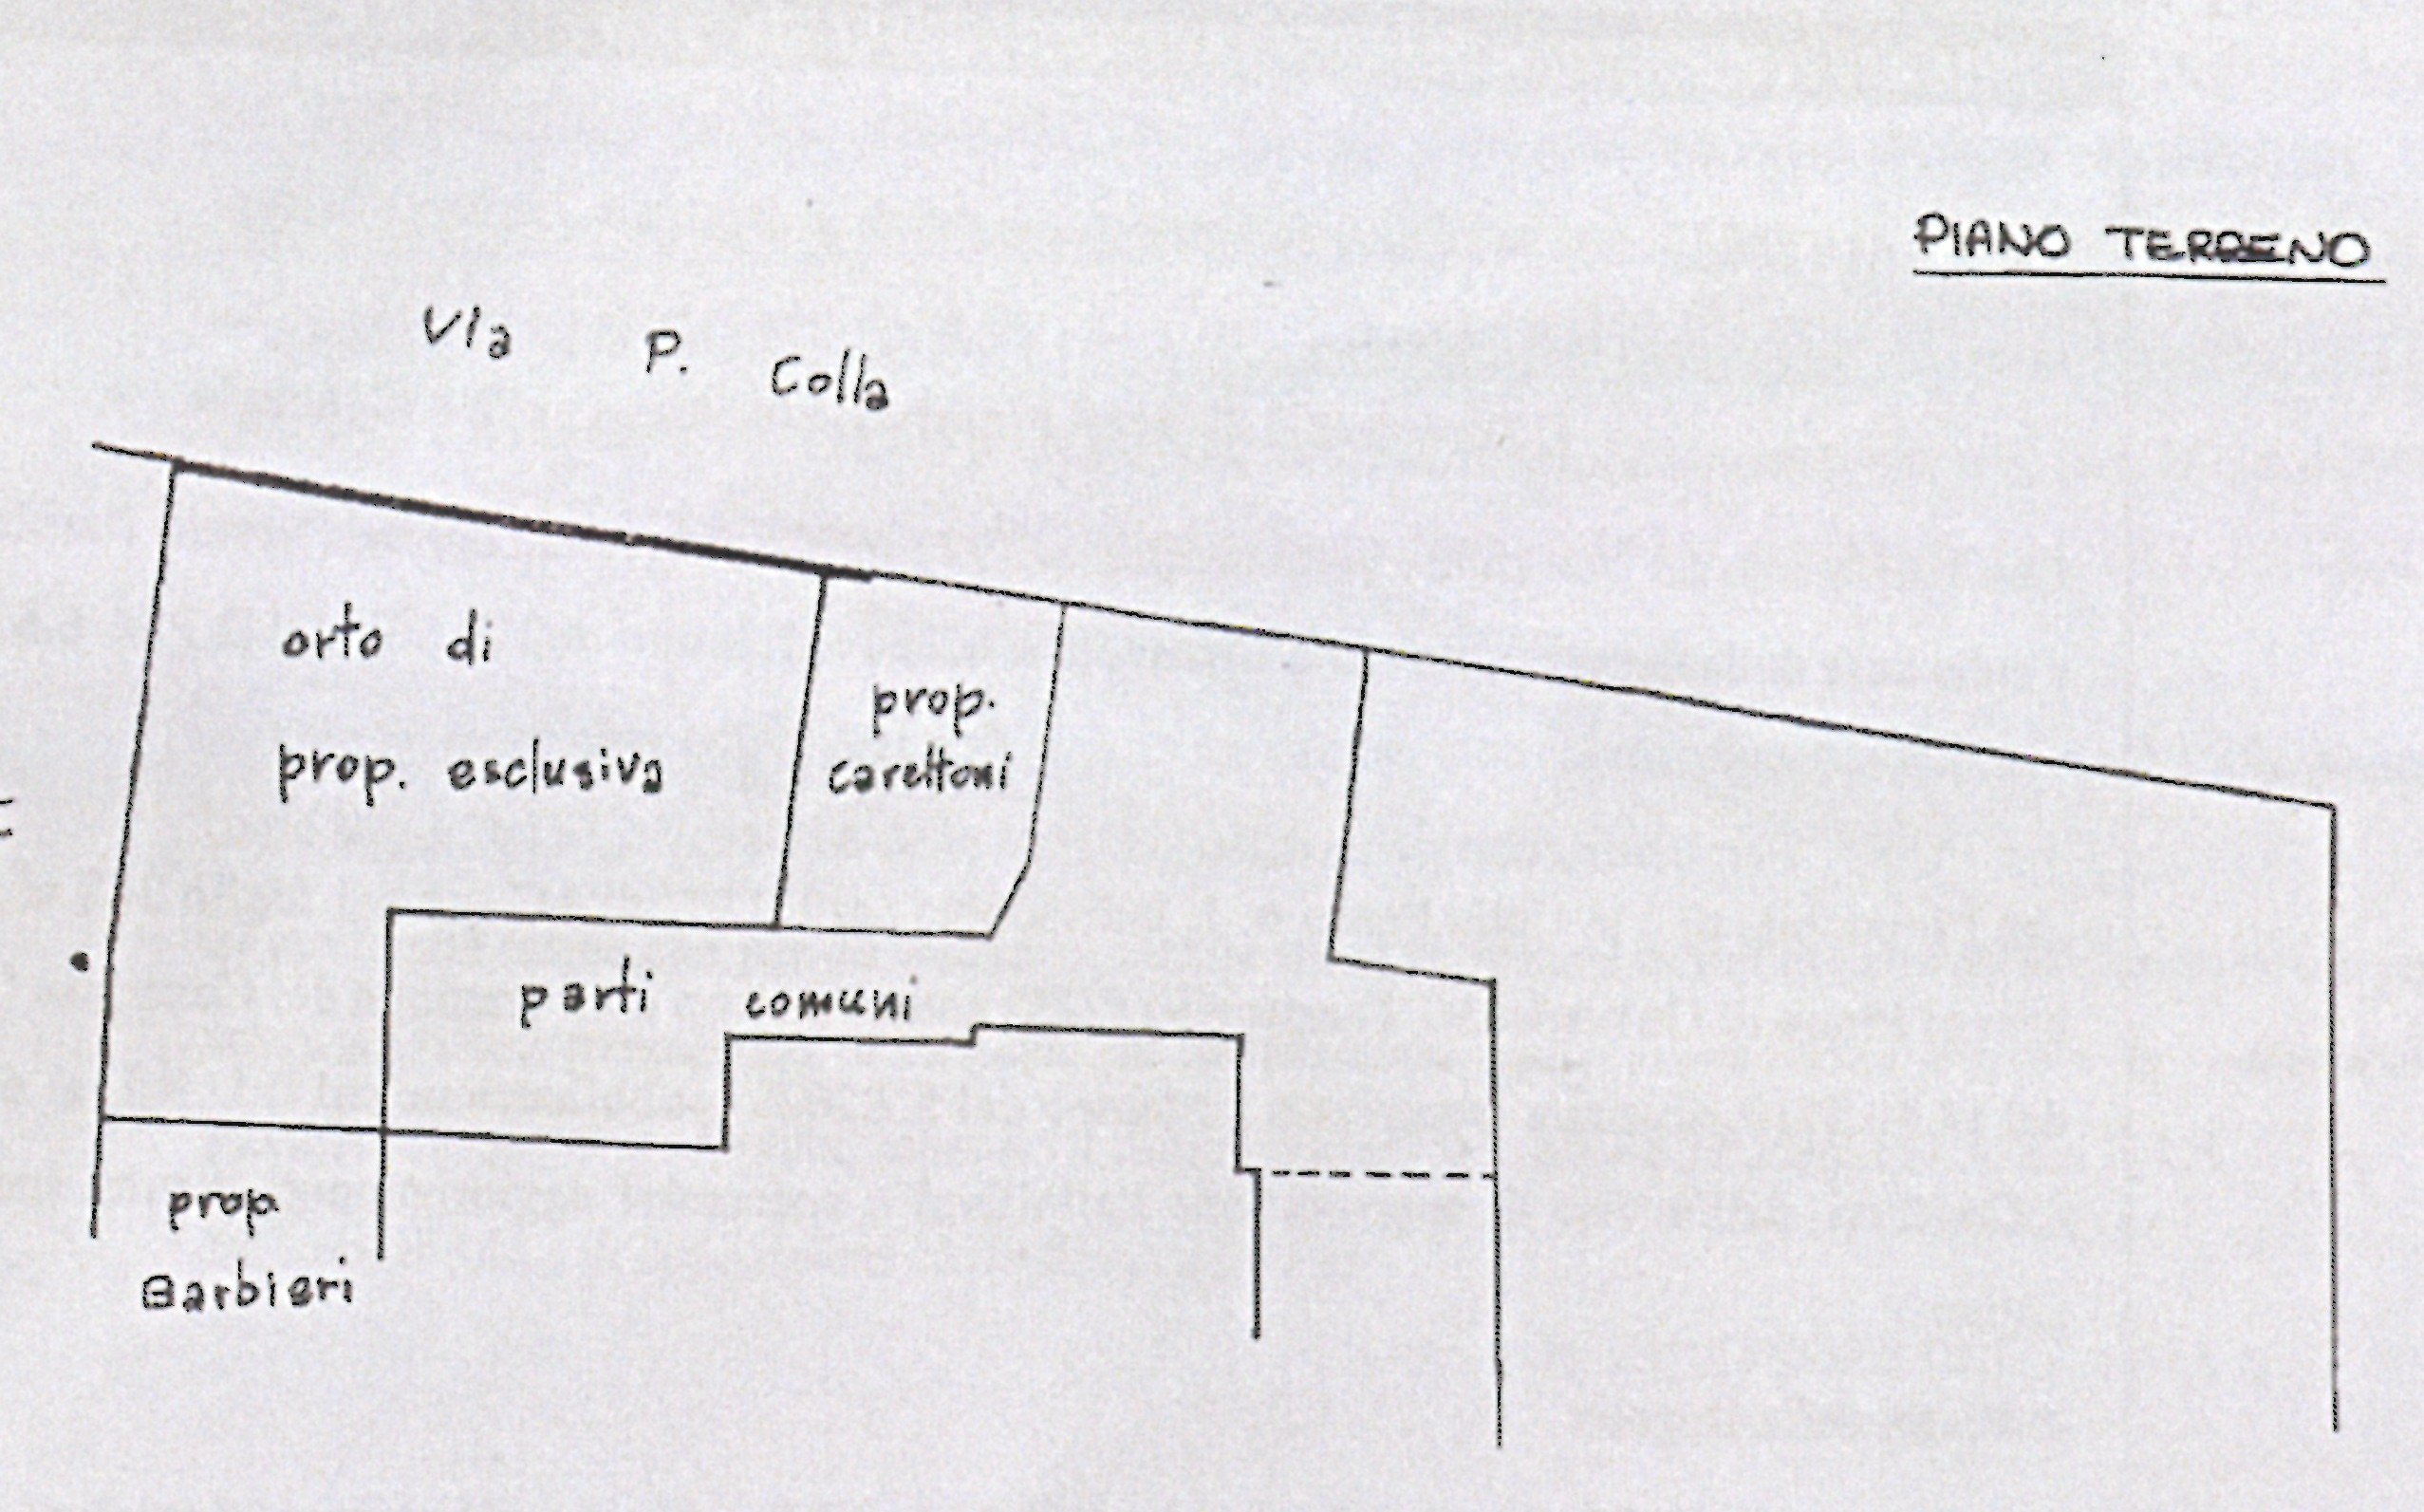 PIANO TERRENO
Via P. Colla
orto di
prop. esclusiva
prop.
carettoni
parti comuni
prop.
Barbieri